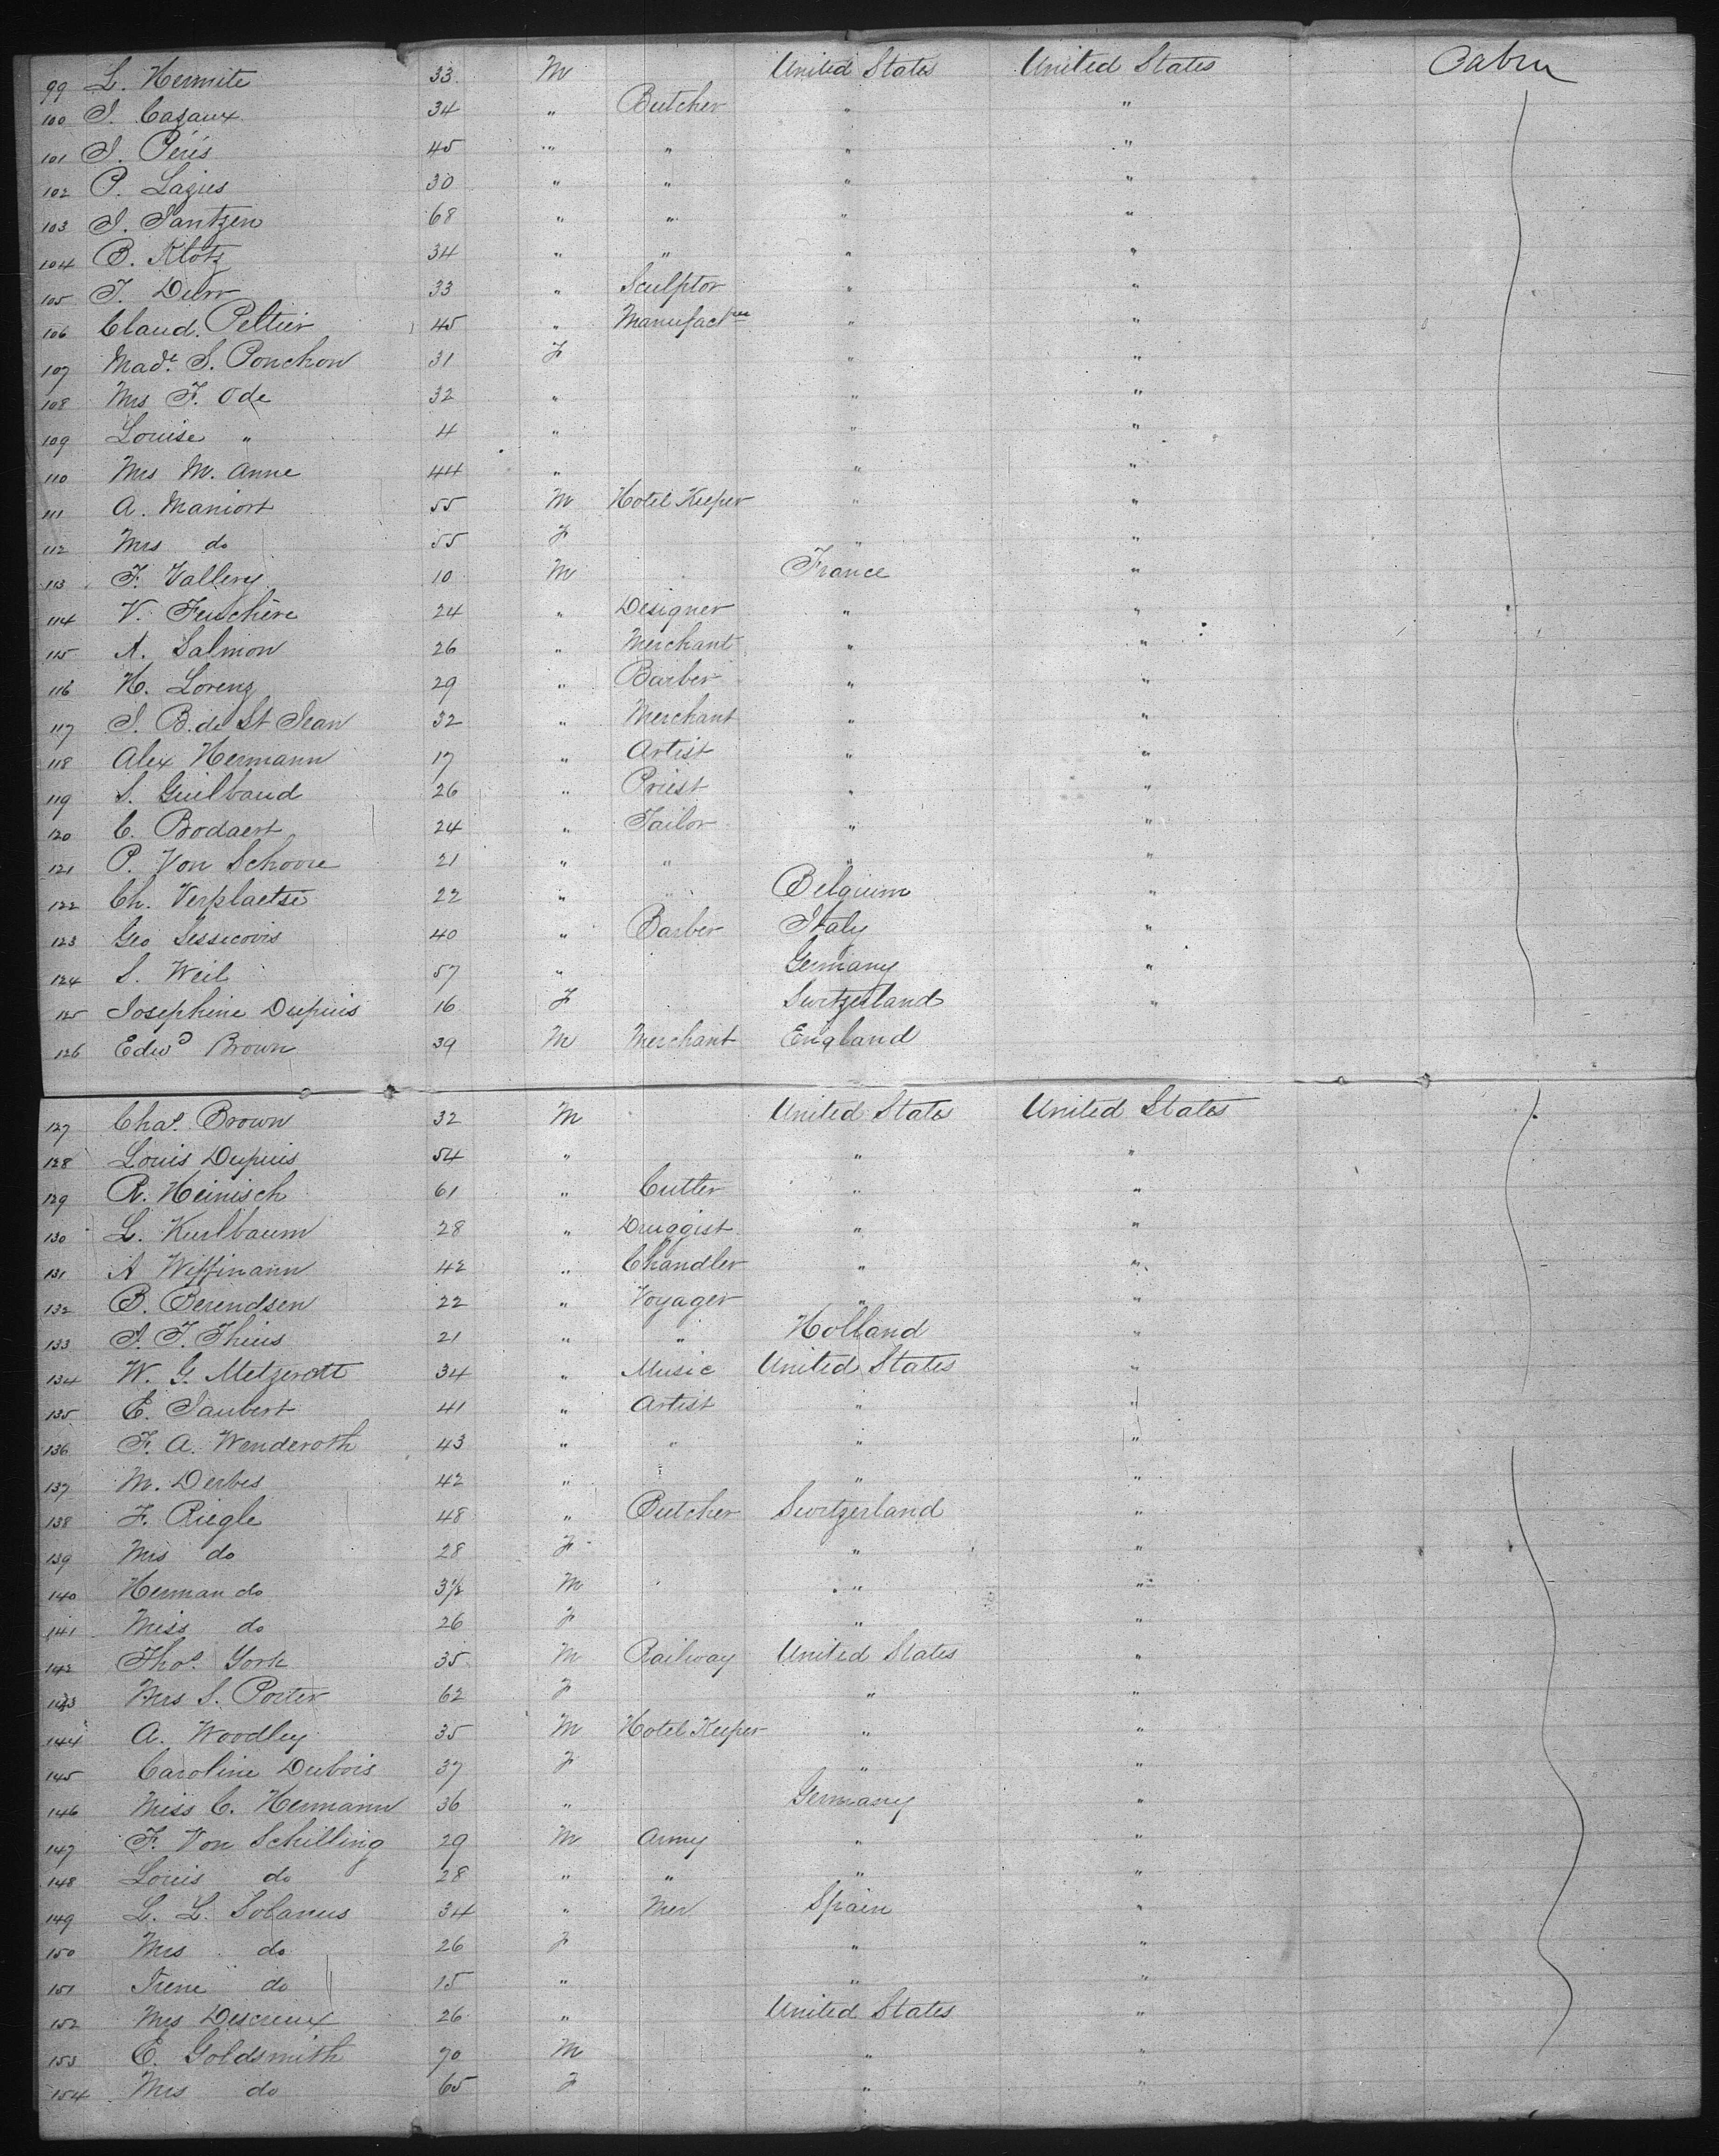 99 L. Hermite 33 M United States United States Cabin
100 J. Cazaux 34 " Butcher " "
101 J. Péris 45 " " " "
102 P. Lazies 30 " " " "
103 J. Jantzen 68 " " " "
104 B. Klotz 34 " " " "
105 J. Durr 33 " Sculptor " "
106 Claud. Peltier 45 " Manufactrer " "
107 Made. S. Ponchon 31 F " "
108 Mrs F. Ode 32 " " "
109 Louise " 4 " " "
110 Mrs M. Anne 44 " " "
111 A. Maniort 55 M Hotel Keeper " "
112 Mrs do 55 F " "
113 F. Vallery 10 M France "
114 V. Feuchère 24 " Designer " "
115 A. Salmon 26 " Merchant " "
116 H. Lorenz 29 " Barber " "
117 J. B. de St Jean 32 " Merchant " "
118 Alex Hermann 17 " Artist " "
119 S. Guilbaud 26 " Priest " "
120 C. Bodaert 24 " Tailor " "
121 P. Von Schoore 21 " " " "
122 Ch. Verplaetse 22 " " Belgium "
123 Geo 40 " Barber Italy "
124 S. Weil 57 " Germany "
125 Josephine Dupuis 16 F Switzerland "
126 Edwd Brown 39 M Merchant England
127 Chas. Brown 32 M United States United States
128 Louis Dupuis 54 " " "
129 R. Heinisch 61 " Cutler " "
130 L. Kurlbaum 28 " Druggist " "
131 A Wiffmann 42 " Chandler " "
132 B. Berendsen 22 " Voyager " "
133 J. Thius 21 " " Holland "
134 W. G. Metzerott 34 " Music United States "
135 E. Saubert 41 " Artist " "
136 F. A. Wenderoth 43 " " " "
137 M. Derbes 42 " " " "
138 F. Riegle 48 " Butcher Switzerland "
139 Mrs do 28 F " "
140 Herman do 3½ M " "
141 Miss do 26 F " "
142 Thos. York 35 M Railway United States "
143 Mrs S. Porter 62 F " "
144 A. Woodley 35 M Hotel Keeper " "
145 Caroline Dubois 37 F " "
146 Miss C. Hermann 36 " Germany "
147 F. Von Schilling 29 M Army " "
148 Louis do 28 " " " "
149 L. L. Solanus 34 " Mer Spain "
150 Mrs do 26 F " "
151 Irene do 15 " " "
152 Mrs Descreux 26 " United States "
153 E. Goldsmith 70 M " "
154 Mrs do 65 F " "